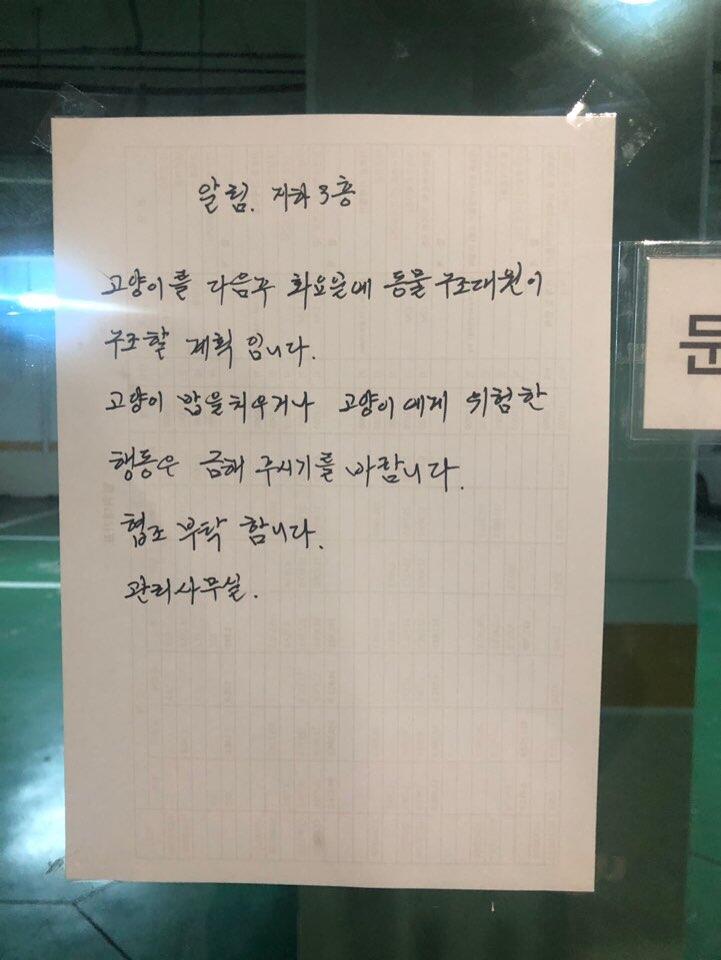 알림. 지하3층
고양이를 다음주 화요일에 동물구조대원이
구조할 계획 입니다.
고양이 밥을치우거나 고양이에게 위험한
행동은 금해 주시기를 바랍니다.
협조 부탁 합니다.
관리사무실.
문